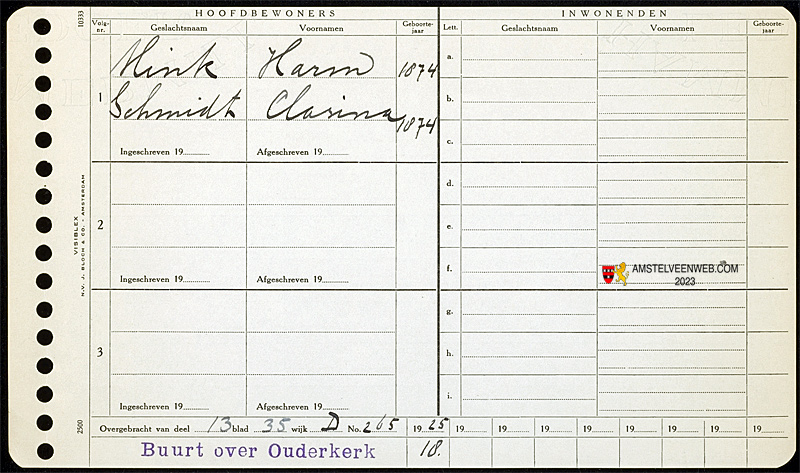 HOOFDBEWONERS INWONENDEN
Volg-nr. Geslachtsnaam Voornamen Geboorte-jaar Lett. Geslachtsnaam Voornamen Geboorte-jaar
10333
Mink Harm 1874 a.
1 Schmidt Clasina 1874 b.
c.
Ingeschreven 19 Afgeschreven 19
d.
2 e.
VISIBLEX
N.V. J. BLOCH & CO. - AMSTERDAM
f. AMSTELVEENWEB.COM
2023
Ingeschreven 19 Afgeschreven 19
g.
3 h.
i.
Ingeschreven 19 Afgeschreven 19
2500
Overgebracht van deel 13 blad 35 wijk D No. 265 19 25 19 19 19 19 19 19 19 19
Buurt over Ouderkerk 18.